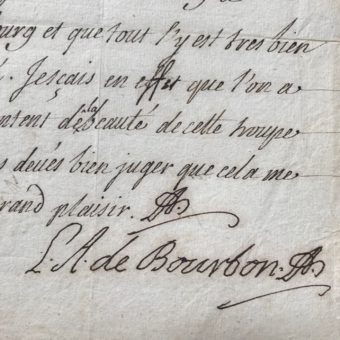 ourg et que tout l'y est tres bien
Jesçais en effet que l'on a
ntent de la beauté de cette troupe
s devés bien juger que cela me
rand plaisir.
L. A. de Bourbon.